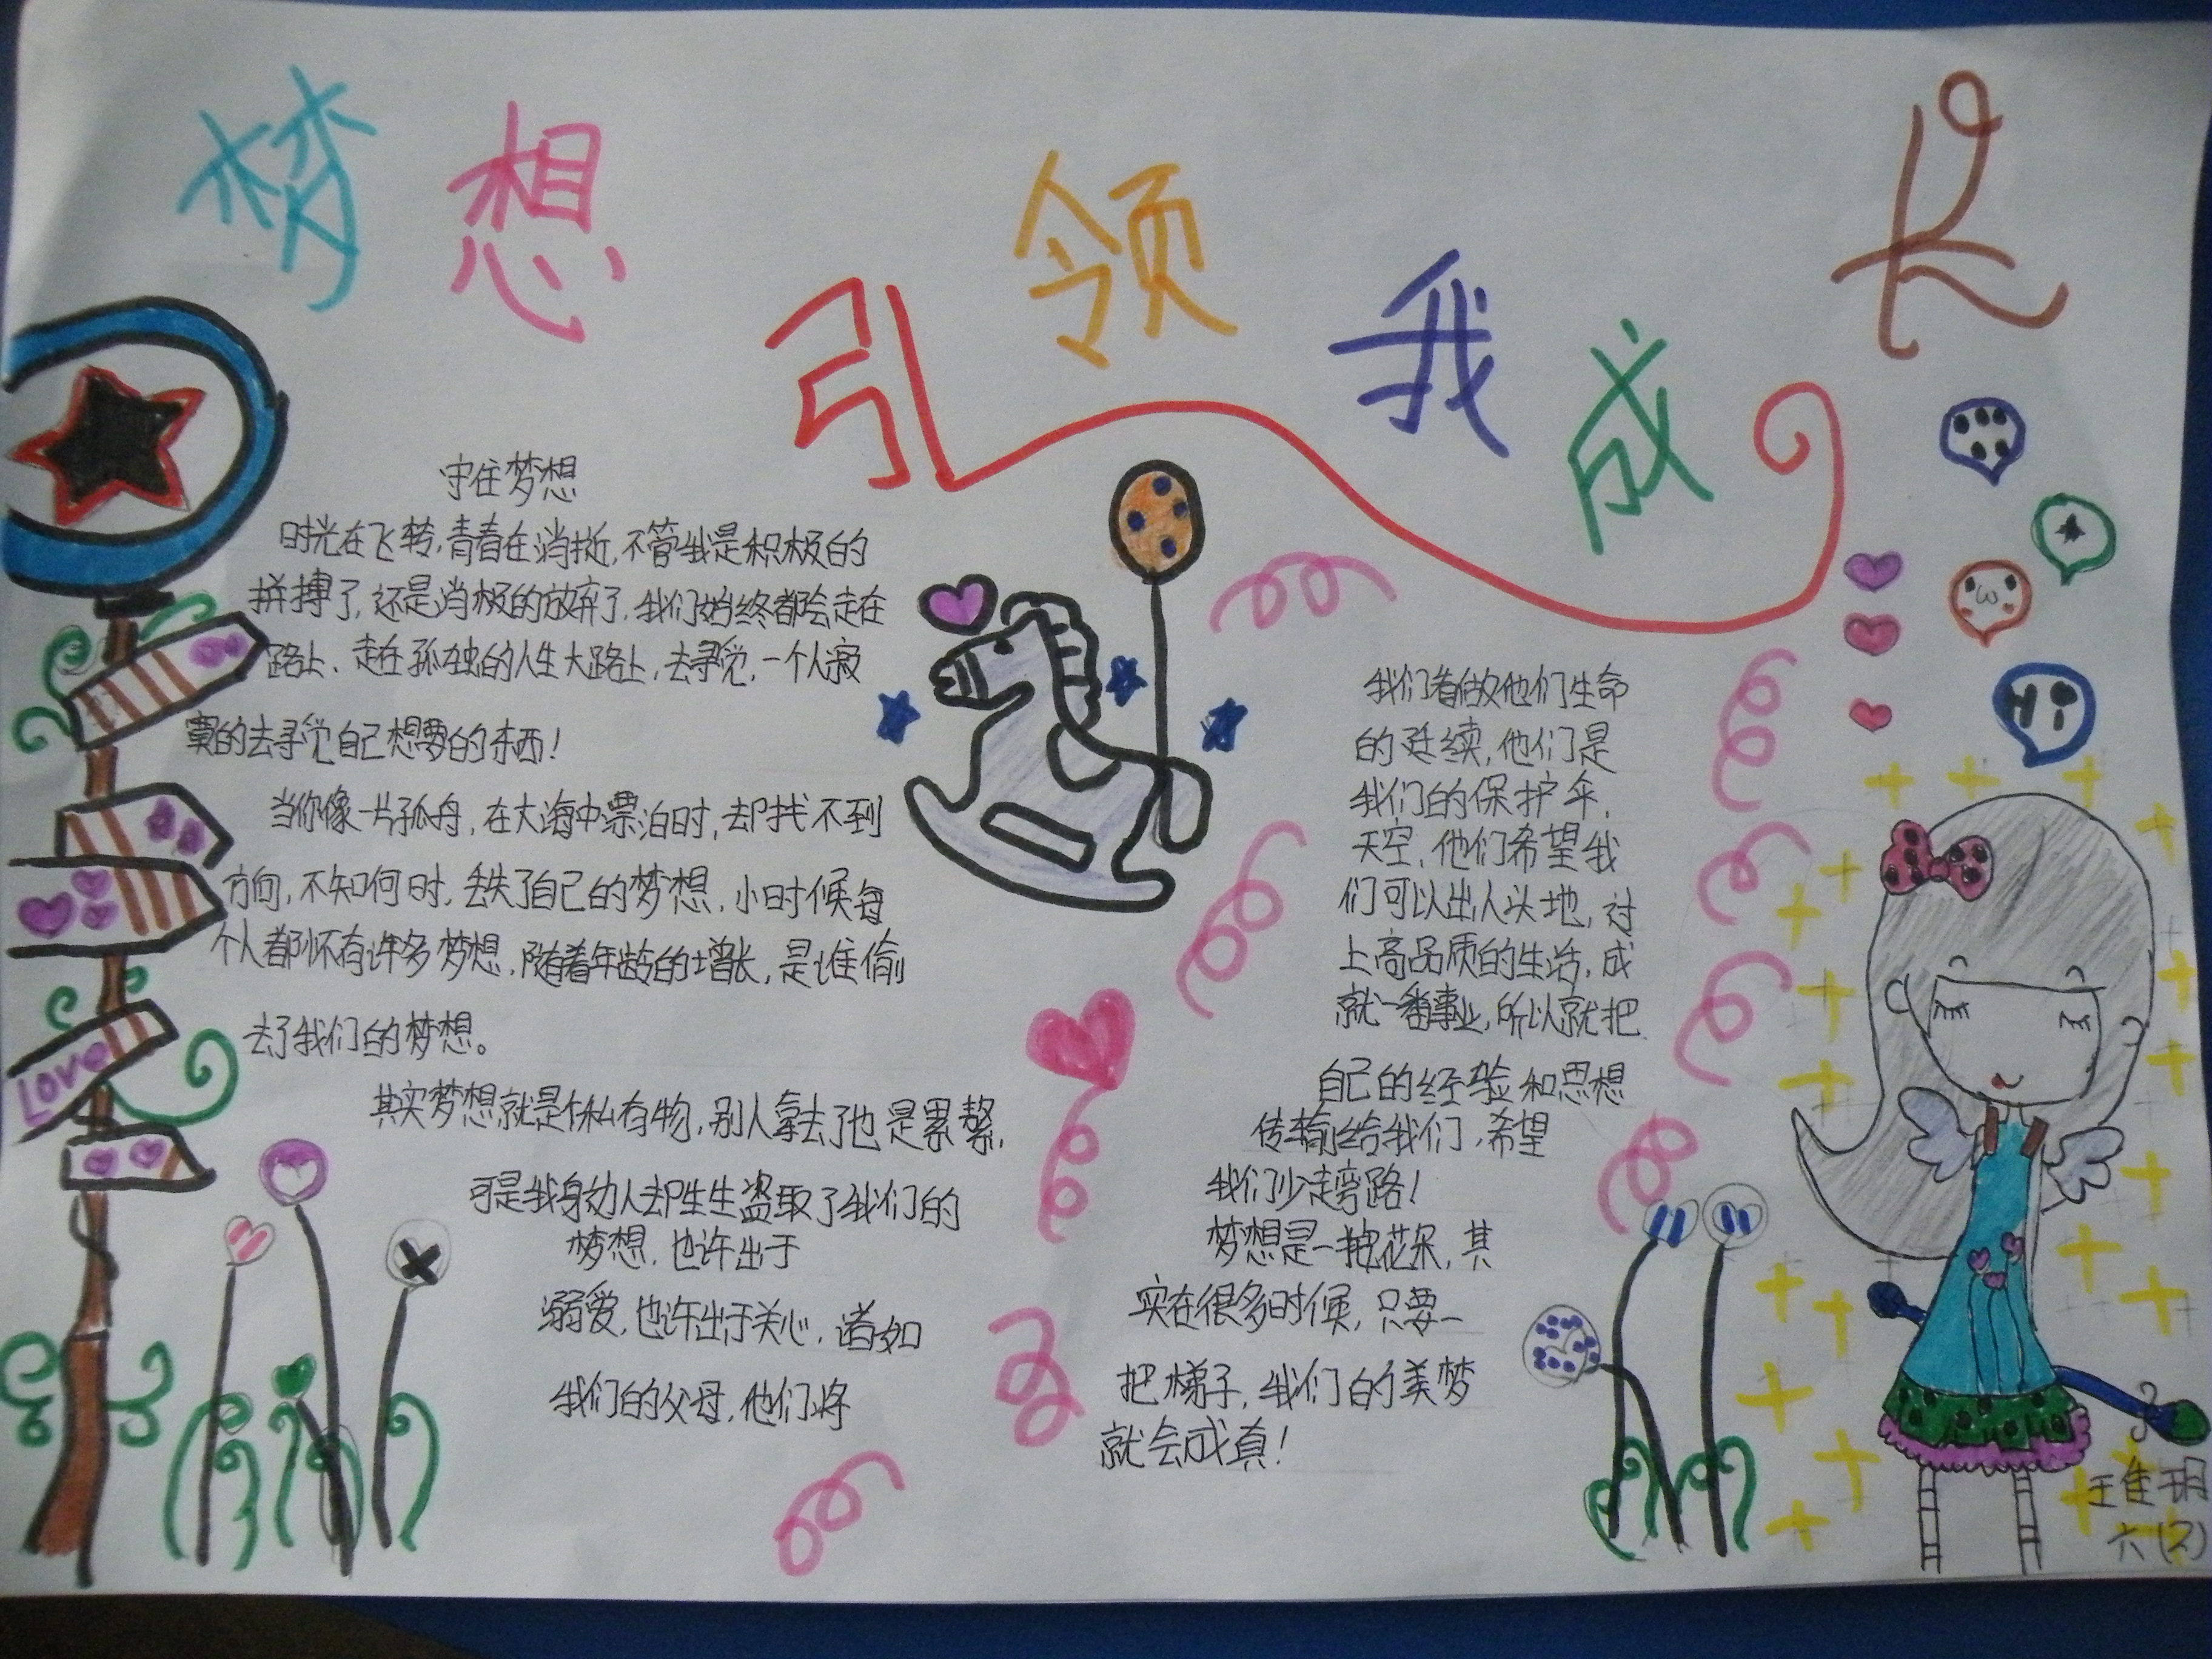 梦想引领我成长
守住梦想
时光在飞转,青春在消逝,不管我是积极的
拼搏了,还是消极的放弃了,我们始终都会走在
路上、走在孤独的人生大路上,去寻觅,一个人寂
寞的去寻觅自己想要的东西!
当你像一片孤舟,在大海中漂泊时,却找不到
方向,不知何时,丢失了自己的梦想,小时候每
个人都怀有许多梦想,随着年龄的增长,是谁偷
去了我们的梦想。
其实梦想就是你私有物,别人拿去了也是累赘,
可是我身边人却生生盗取了我们的
梦想,也许出于
溺爱,也许出于关心,诸如
我们的父母,他们将
我们看做他们生命
的延续,他们是
我们的保护伞,
天空,他们希望我
们可以出人头地,过
上高品质的生活,成
就一番事业,所以就把
自己的经验和思想
传输给我们,希望
我们少走弯路!
梦想是一
花朵,其
实在很多时候,只要一
把梯子,我们的美梦
就会成真!
Love
Hi
王佳玥
六(2)